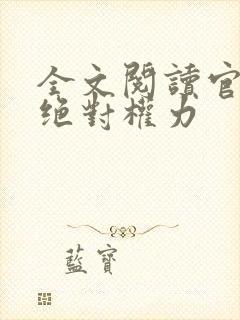 全文閱讀官
絕對權力
藍寶